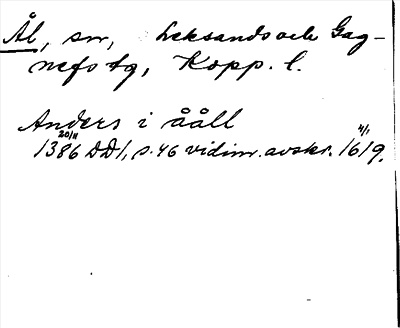 Ål, sn, Leksands och Gag-
nefs tg, Kopp. l.
Anders i ååll
1386 20/11 DD 1, s. 46 vidim. avskr. 16 11/1 19.